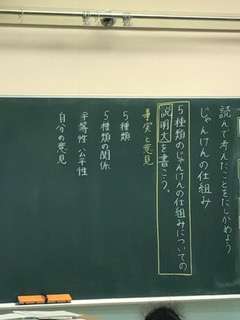 読んで考えたことをたしかめよう
じゃんけんの仕組み
5種類のじゃんけんの仕組みについての
説明文を書こう。
事実と意見
5種類
5種類の関係
平等性 公平性
自分の意見